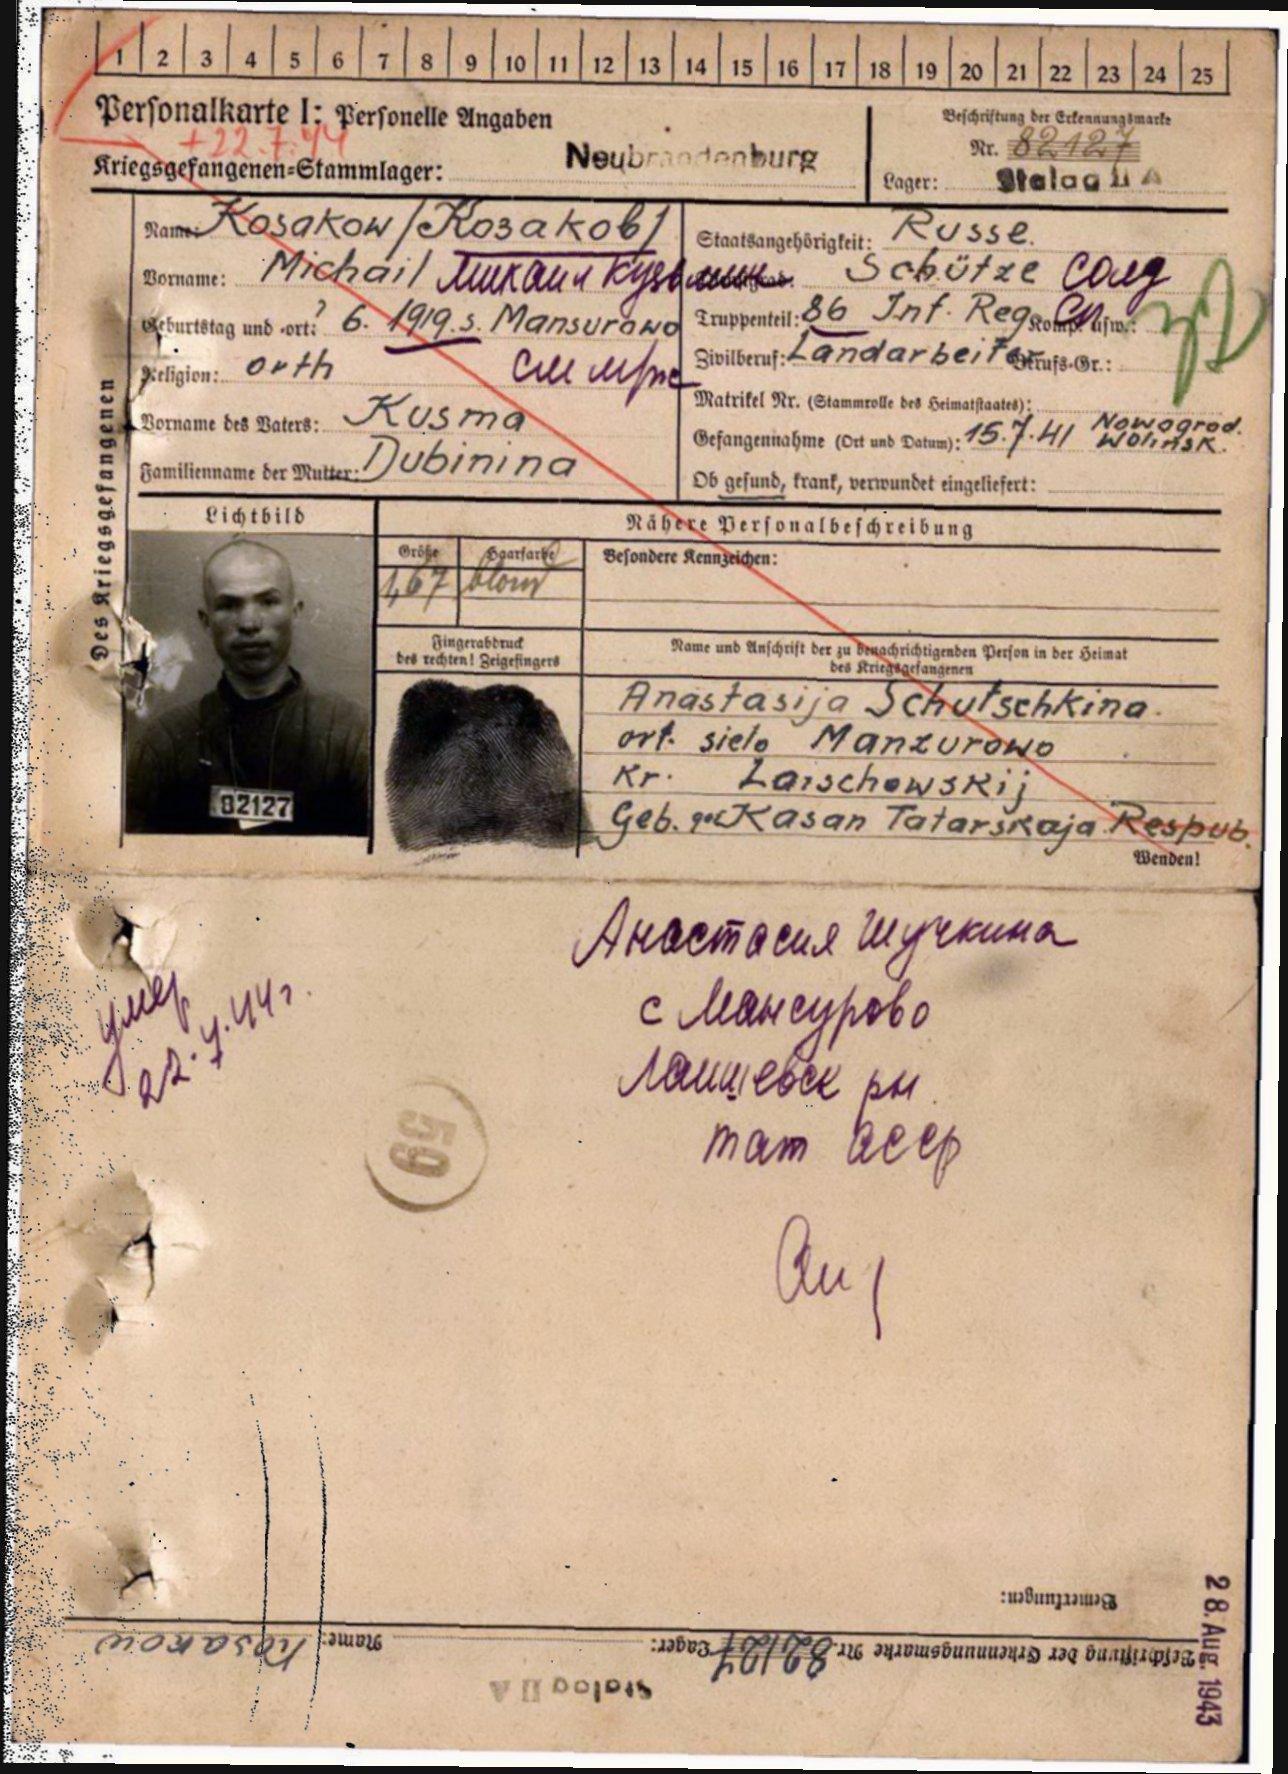 1 2 3 4 5 6 7 8 9 10 11 12 13 14 15 16 17 18 19 20 21 22 23 24 25
Personalkarte I: Personelle Angaben
+22.7.44
Kriegsgefangenen-Stammlager: Neubrandenburg
Beschriftung der Erkennungsmarke
Nr. 82127
Lager: Stalag II A
Des Kriegsgefangenen
Name: Kosakow /Козаков/
Vorname: Michail Михаил Кузьмич
Geburtstag und -ort: 6. 1919. s. Mansurowo
Religion: orth
Vorname des Vaters: Kusma
Familienname der Mutter: Dubinina
Staatsangehörigkeit: Russe.
Schütze солд
Truppenteil: 86 Inf. Reg. Komp. usw.: сп
Zivilberuf: Landarbeiter Berufs-Gr.:
Matrikel Nr. (Stammrolle des Heimatstaates):
Gefangennahme (Ort und Datum): 15.7.41 Nowogrod. Wolinsk.
Ob gesund, krank, verwundet eingeliefert:
Lichtbild
82127
Nähere Personalbeschreibung
Größe Haarfarbe Besondere Kennzeichen:
1,67 blond
Fingerabdruck
des rechten! Zeigefingers
Name und Anschrift der zu benachrichtigenden Person in der Heimat
des Kriegsgefangenen
Anastasija Schutschkina.
ort. sielo Manzurowo
Kr. Laischowskij
Geb. Kasan Tatarskaja Respub.
Wenden!
Анастасия Шучкина
с Мансурово
Лаишевск рн
тат асср
умер
22.7.44г.
59
Bemerkungen:
28. Aug. 1943
Beschriftung der Erkennungsmarke Nr. 82127 Lager:
Name: Kosakow
Stalag II A